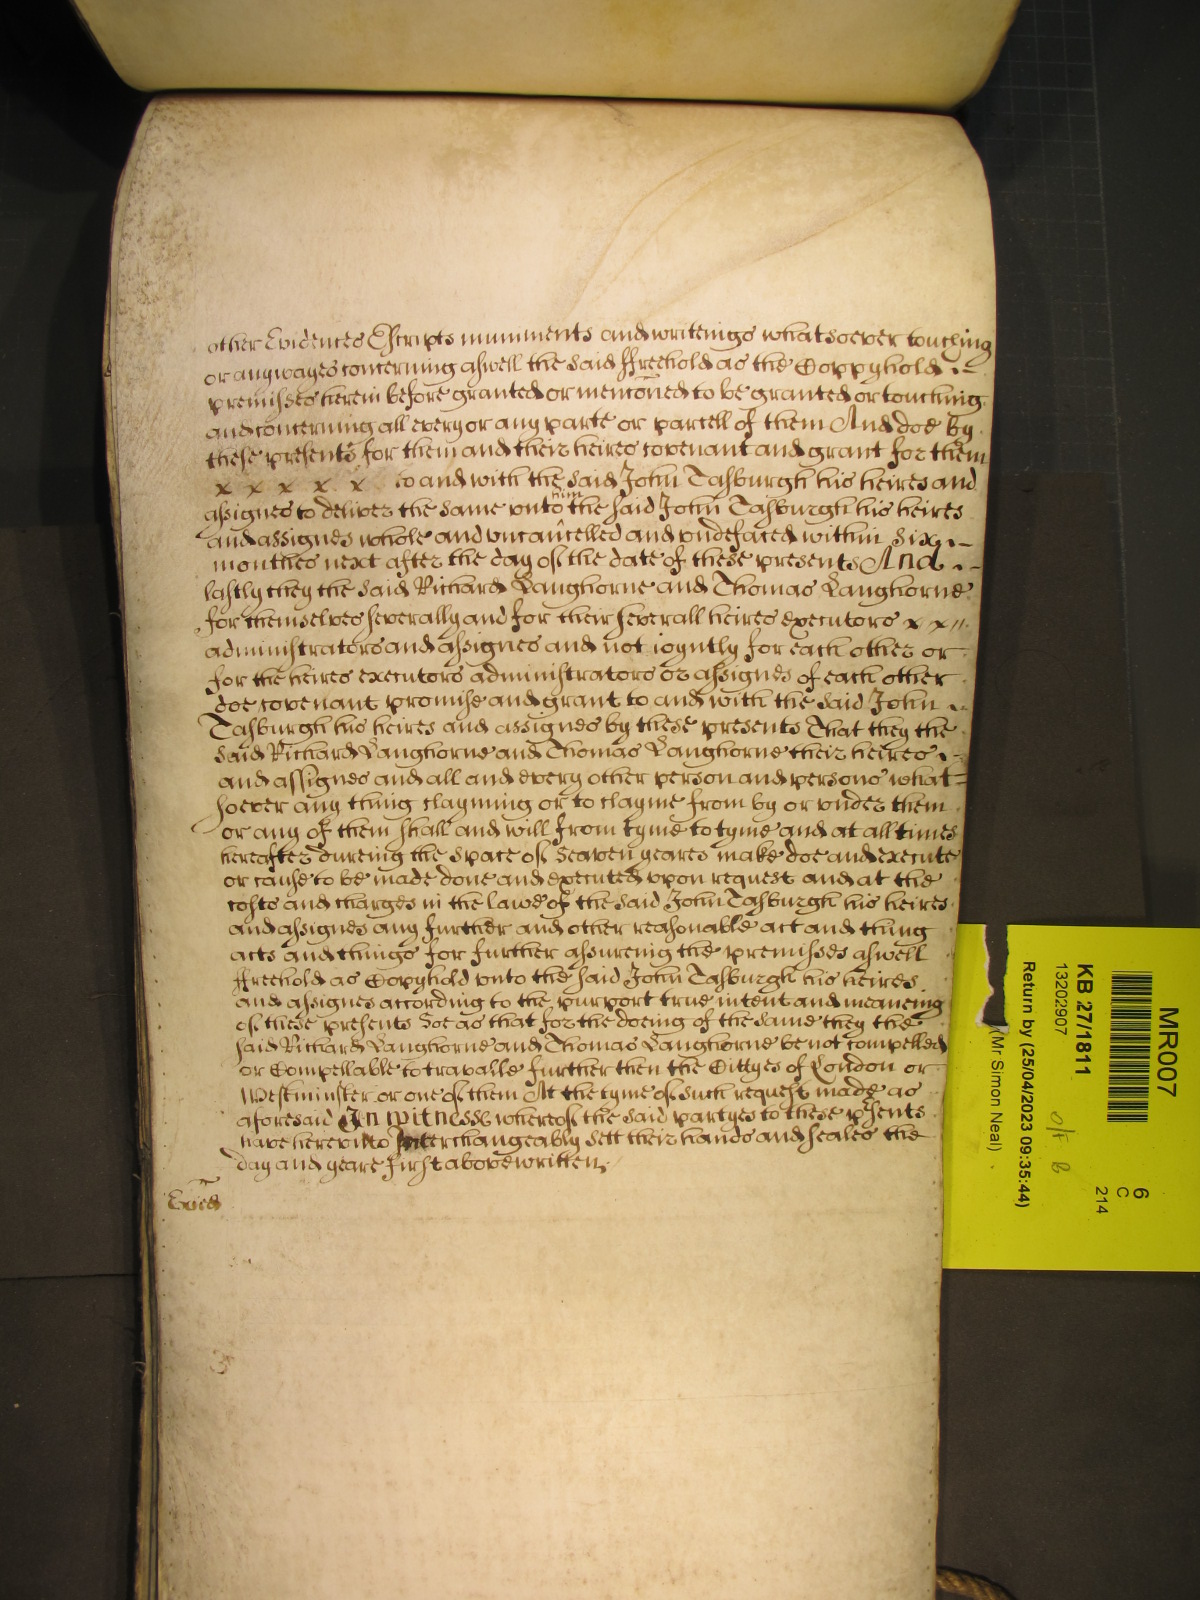 other Evidences Escripts muniments and writeings whatsoever touching
or anywayes concerning aswell the said ffreehold as the Coppyhold
premisses herein before granted or mencõned to be granted or touching
and concerning all every or any parte or parcell of them And doe by
these presents for them and their heires covenant and grant for them
x x x x x to and with the said John Tasburgh his heires and
assignes to deliver the same unto him the said John Tasburgh his heires
and assignes whole and uncancelled and undefaced within six
monthes next after the day of the date of these presents And
lastly they the said Richard Langhorne and Thomas Langhorne
for themselves severally and for their severall heires executors x x
administrators and assignes and not ioyntly for each other or
for the heires executors administrators or assignes of each other
doe covenant promise and grant to and with the said John
Tasburgh his heires and assignes by these presents That they the
said Richard Langhorne and Thomas Langhorne their heires
and assignes and all and every other person and persons what=
soever any thing clayming or to clayme from by or under them
or any of them shall and will from tyme to tyme and at all times
hereafter dureing the space of seaven yeares make doe and execute
or cause to be made done and executed upon request and at the
costs and charges in the lawe of the said John Tasburgh his heires
and assignes any further and other reasonable act and thing
acts and things for further assureing the premisses aswell
ffreehold as Copyhold unto the said John Tasburgh his heires
and assignes according to the purport true intent and meaneing
of these presents Soe as that for the doeing of the same they the
said Richard Langhorne and Thomas Langhorne be not compelled
or Compellable to travaile further then the Cittyes of London or
Westminster or one of them At the tyme of such request made as
aforesaid In witness whereof the said partyes to these psents
have hereunto Interchangeably sett their hands and seales the
day and yeare first above written.
3
MR007
KB 27/1811
13202907
Return by (25/04/2023 09:35:44)
(Mr Simon Neal)
6
C
214